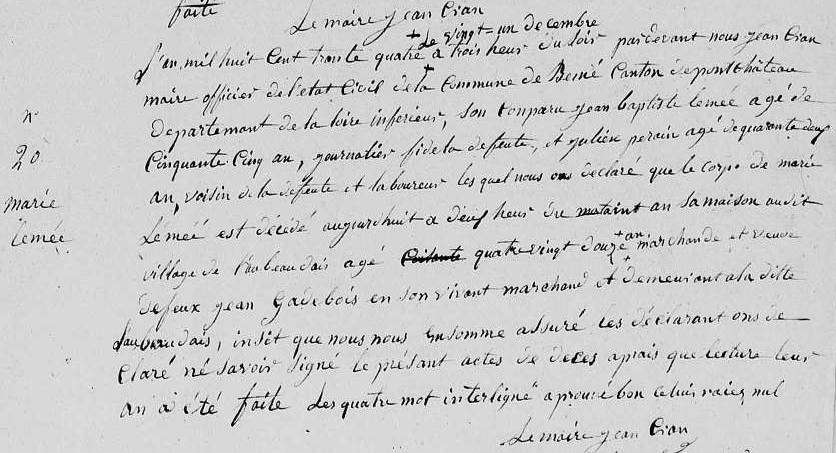 faite
Le maire jean Cian
+ Le vingt=un decembre
L'an mil huit Cent trante quatre a trois heur du soir pardevant nous jean Cian
maire officier de l'etat Civil de la Commune de Beiné Canton de pontchâteau
departemant de la loire inferieur, son Conparu jean baptiste Lemée agé de
Cinquante Cinq an, journalier fi de la defeente, et julien perain agé de quarante deux
an, voisin de la defeente et laboureur les quel nous ons declaré que le corps de marie
n°
20
marie
Lemée
Lemeé est décédé aujourdhuit a deux heur du mataint an sa maison audit
village de l'aubeaudais agé quatre vingt douze +an marchande et veuve
defeux jean Gadebois en son vivant marchand et demeurant a la ditte
Laubeaudais, insit que nous nous ensomme assuré les déclarant ons de
Claré né savoir signé le présant actes de deces aprais que lecture leur
an a été faite Les quatre mot interligné aprouvé bon celui raiez nul
Le maire jean Cian